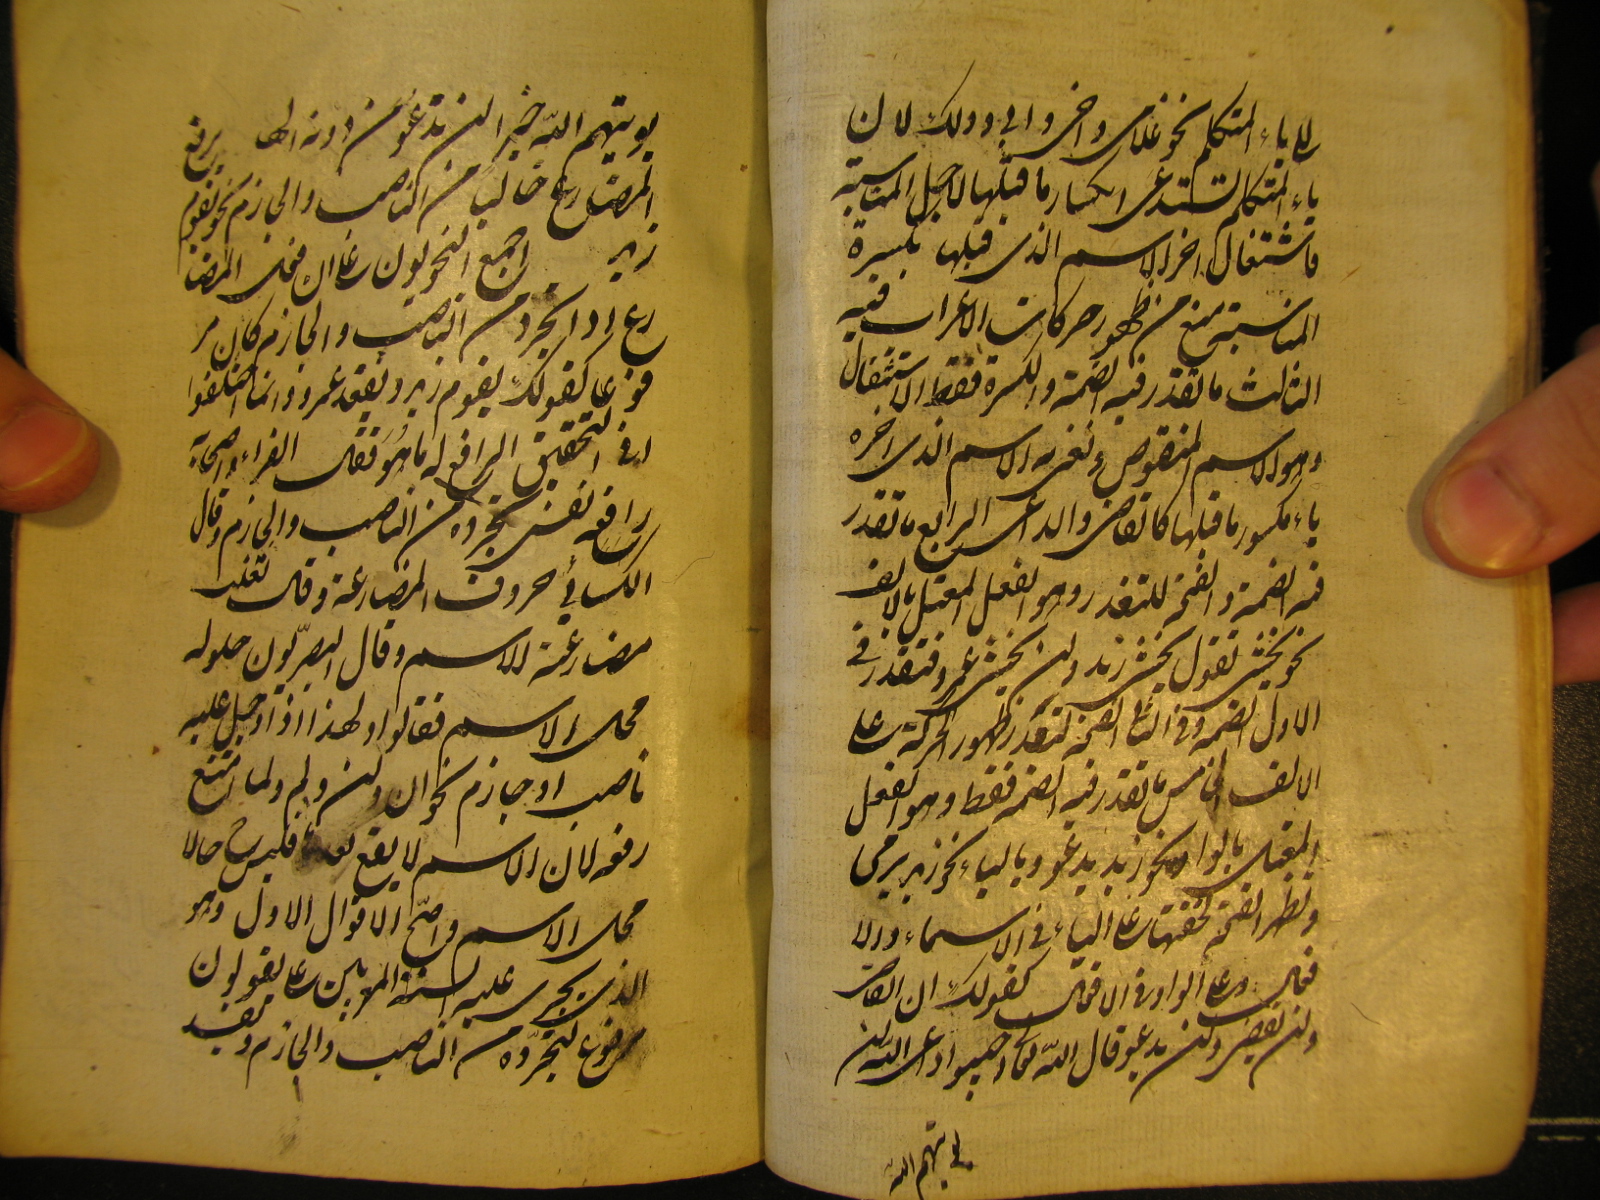 لياء المتكلم نحو غلامي واخي وابي وذلك لان
ياء المتكلم تستدعي انكسار ما قبلها لاجل المناسبة
فاشتغال اخر الاسم الذي قبلها بكسرة
المناسبة يمنع من ظهور حركات الاعراب فيه
الثالث ما تقدر فيه الضمة والكسرة فقط الاستثقال
وهو الاسم المنقوص ونعني به الاسم الذي اخره
ياء مكسور ما قبلها كالقاضي والداعي الرابع ما تقدر
فيه الضمة والفتحة للتعذر وهو الفعل المعتل بالالف
نحو يخشى تقول يخشى زيد ولن يخشى عمرو فتقدر في
الاول الضمة وفي الثاني الفتحة لتعذر ظهور الحركة على
الالف الخامس ما تقدر فيه الضمة فقط وهو الفعل
المعتل بالواو نحو زيد يدعو وبالياء نحو زيد يرمي
وتظهر الفتحة لخفتها على الياء في الاسماء والا
فعال وعلى الواو في الافعال كقولك ان القاضي
ولن يقضي ولن يدعو قال الله تعالى اجيبوا داعي الله لن
يؤتيهم الله
يوتيهم الله خيرا لن ندعو من دونه الها يرفع
المضارع خاليا من الناصب والجازم نحو يقوم
زيد اجمع النحويون على ان فعل المضا
رع اذا تجرد من الناصب والجازم كان مر
فوعا كقولك يقوم زيد ويقعد عمرو وانما اختلفوا
في التحقيق الرافع له ما هو فقال الفراء واصحابه
رافعه نفس تجرده من الناصب والجازم وقال
الكسائي حروف المضارعة وقال ثعلب
مضارعته للاسم وقال البصريون حلوله
محل الاسم فقالوا ولهذا اذا دخل عليه
ناصب او جازم نحو ان ولن ولم ولما امتنع
رفعه لان الاسم لا يقع بعدها فليس ح حالا
محل الاسم واصح الاقوال الاول وهو
الذي يجري على السنة المعربين على يقولون
مرفوع لتجرده من الناصب والجازم ويفسد